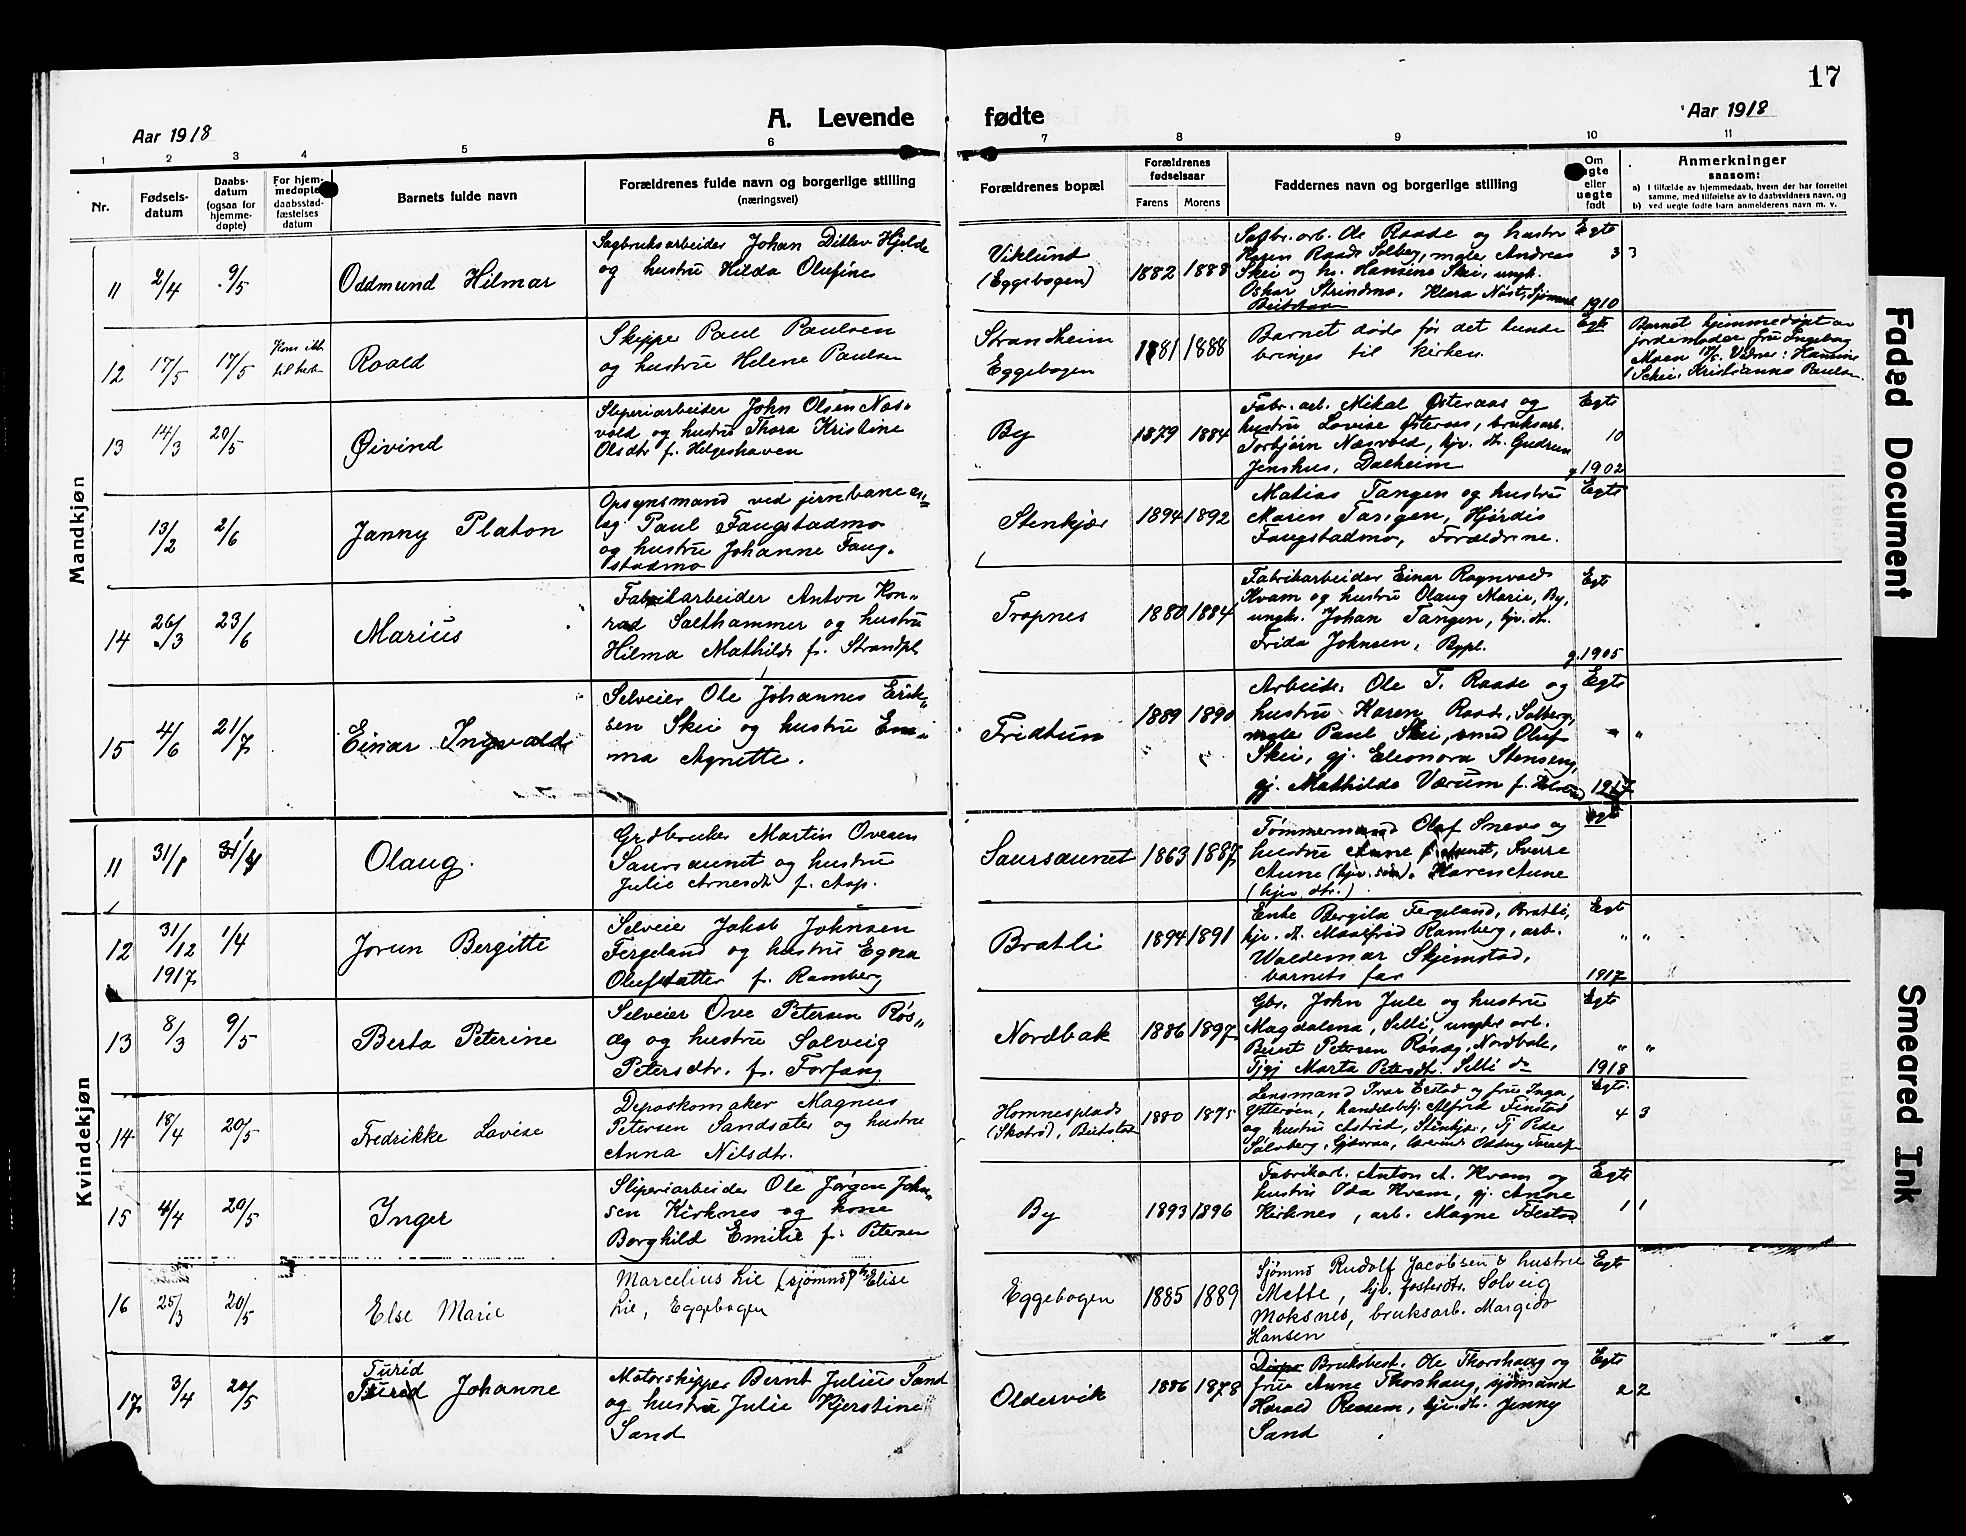 17
A. Levende fødte
Aar 1918
Aar 1918
1 2 3 4 5 6 7 8 9 10 11
Nr.
Fødsels-
datum
Daabs-
datum
(ogsaa for
hjemme-
døpte)
For hjem-
medøpte
daabsstad-
fæstelses
datum
Barnets fulde navn
Forældrenes fulde navn og borgerlige stilling
(næringsvei)
Forældrenes bopæl
Forældrenes
fødselsaar
Farens Morens
Faddernes navn og borgerlige stilling
Om
ægte
eller
uegte
født
Anmerkninger
saasom:
a) i tilfælde av hjemmedaab, hvem der har forrettet
samme, med tilføielse av to daabsvidners navn, og
b) ved uegte fødte barn anmelderens navn m. v.
Mandkjøn
11 2/4 9/5 Oddmund Hilmar
Sagbruksarbeider Johan Ditlev Hjelde
og hustru Hilda Olufine
Viklund
(Eggebogen)
1882 1888
Sagbr. arb. Ole Raade og hustru
Karen Raade Solberg, maler Andreas
Skei og h. Hansine Skei, ungk.
Oskar Strindmo, Klara
Beitstaen
Egte
3 3
1910
12 17/5 17/5
Kom ikke
til kirken
Roald
Skipper Paul Paulsen
og hustru Helene Paulsen
Strandheim
Eggebogen
1881 1888
Barnet døde før det kunde
bringes til kirken.
Egte
Barnet hjemmedøpt av
jordemoder fru Ingeborg
Moen 17/5. Vidner: Hansine
Skei, Kristianna Paulsen
13 14/3 20/5 Øivind
Sliperiarbeider John Olsen Næs-
vold og hustru Thora Kristine
Olsdtr f. Helgeshaven
By
1879 1884
Fabr. arb. Mikal Østeraas og
hustru Lovise Østeraas, bruksarb.
Torbjørn Næsvold, hjv. dt. Gudrun
Jenshus, Dalheim
Egte
10
g. 1902
13/2 2/6 Janny Platon
Opsynsmand ved jernbanean-
læg Paul Faugstadmo
og hustru Johanne Faug-
stadmo
Stenkjær
1894 1892
Matias Tangen og hustru
Maren Tangen, Hjørdis
Faugstadmo, Forældrene.
Egte
14 26/3 23/6 Marius
Fabrikarbeider Anton Kon-
rad Salthammer og hustru
Hilma Mathilde f. Strandpl.
Tropnes
1880 1884
Fabrikarbeider Einar Ragnvald
Kvam og hustru Olaug Marie, By,
ungk. Johan Tangen, hjv. dt.
Frida Johnsen, Bypl.
Egte
g. 1905
15 4/6 21/7 Einar Ingvald
Selveier Ole Johannes Erik-
sen Skei og hustru Em-
ma Agnette.
Fridtun
1889 1890
Arbeider Ole T. Raade og
hustru Karen Raade, Solberg,
maler Paul Skei, smed Oluf
Skei, gj. Eleonora Stenseng,
gj. Mathilde Værum f.
Egte
" "
1917
Kvindekjøn
11 31/1 Olaug.
Grdbruker Martin Ovesen
Saursaunet og hustru
Julie Arnesdt f. Asp.
Saursaunet
1863 1887
Tømmermand Olaf Sneve og
hustru Anne f. Aunet, Sverre
Aune (hjv. søn), Karen Aune
(hjv. dtr.)
Egte
12 31/12 1/4 Jorun Bergitte
1917
Selveier Jakob Johnsen
Fergeland og hustru Egora
Olufsdatter f. Ramberg
Bratli
1894 1891
Enke Bergita Fergeland, Bratli,
hjv. dt. Maalfrid Ramberg, arb.
Waldemar Skjemstad,
barnets far
Egte
" "
1917
13 8/3 9/5 Berta Peterine
Selveier Ove Petersen Røs-
æg og hustru Solveig
Petersdtr. f. Forfang
Nordbak
1886 1897
Gbr. John Jule og hustru
Magdalena, Selli, ungkr arb.
Bernt Petersen Røsæg, Nordbak,
Tjgj Marta Petersdt. Selli
Egte
" "
1918
14 18/4 20/5 Fredrikke Lovise
Deposkomaker Magnus
Petersen Sandsæter og hustru
Anna Nilsdtr.
Homnesplads
(Skatval), Beitstad
1880 1875
Lensmand Ivar Eestad og frue Inga,
Ytterøen, handelsbetj. Alfred Finstad
og hustru Astrid, Stenkjær, Tj. Peder
Solvberg,
Egte.
4 3
15 4/4 20/5 Inger
Sliperiarbeider Ole Jørgen John-
sen Kirknes og kone
Borghild Emilie f. Petersen
By
1893 1896
Fabrikarb. Anton A. Kvam og
hustru Ida Kvam, gj. Anne
Kirknes, arb. Magne
Egte
1 1
16 25/3 20/5 Else Marie
Marcelius Lie (sjømnd) & h. Elise
Lie, Eggebogen
Eggebogen
1885 1889
Sjømnd Rudolf Jacobsen & hustru
Mette, hjv. fosterdtr. Solveig
Moksnes, bruksarb. Margido
Hansen
Egte
" "
17 3/4 20/5
Turid
Turid Johanne
Motorskipper Bernt Julius Sand
og hustru Julie Kjerstine
Sand
Oldervik
1886 1878
Bruksbest. Ole Thorshaug og
frue Anne Thorshaug, sjømand
Harald Ressem, hjv. dt. Jenny
Sand
Egte
2 2
Faded Document
Smeared Ink